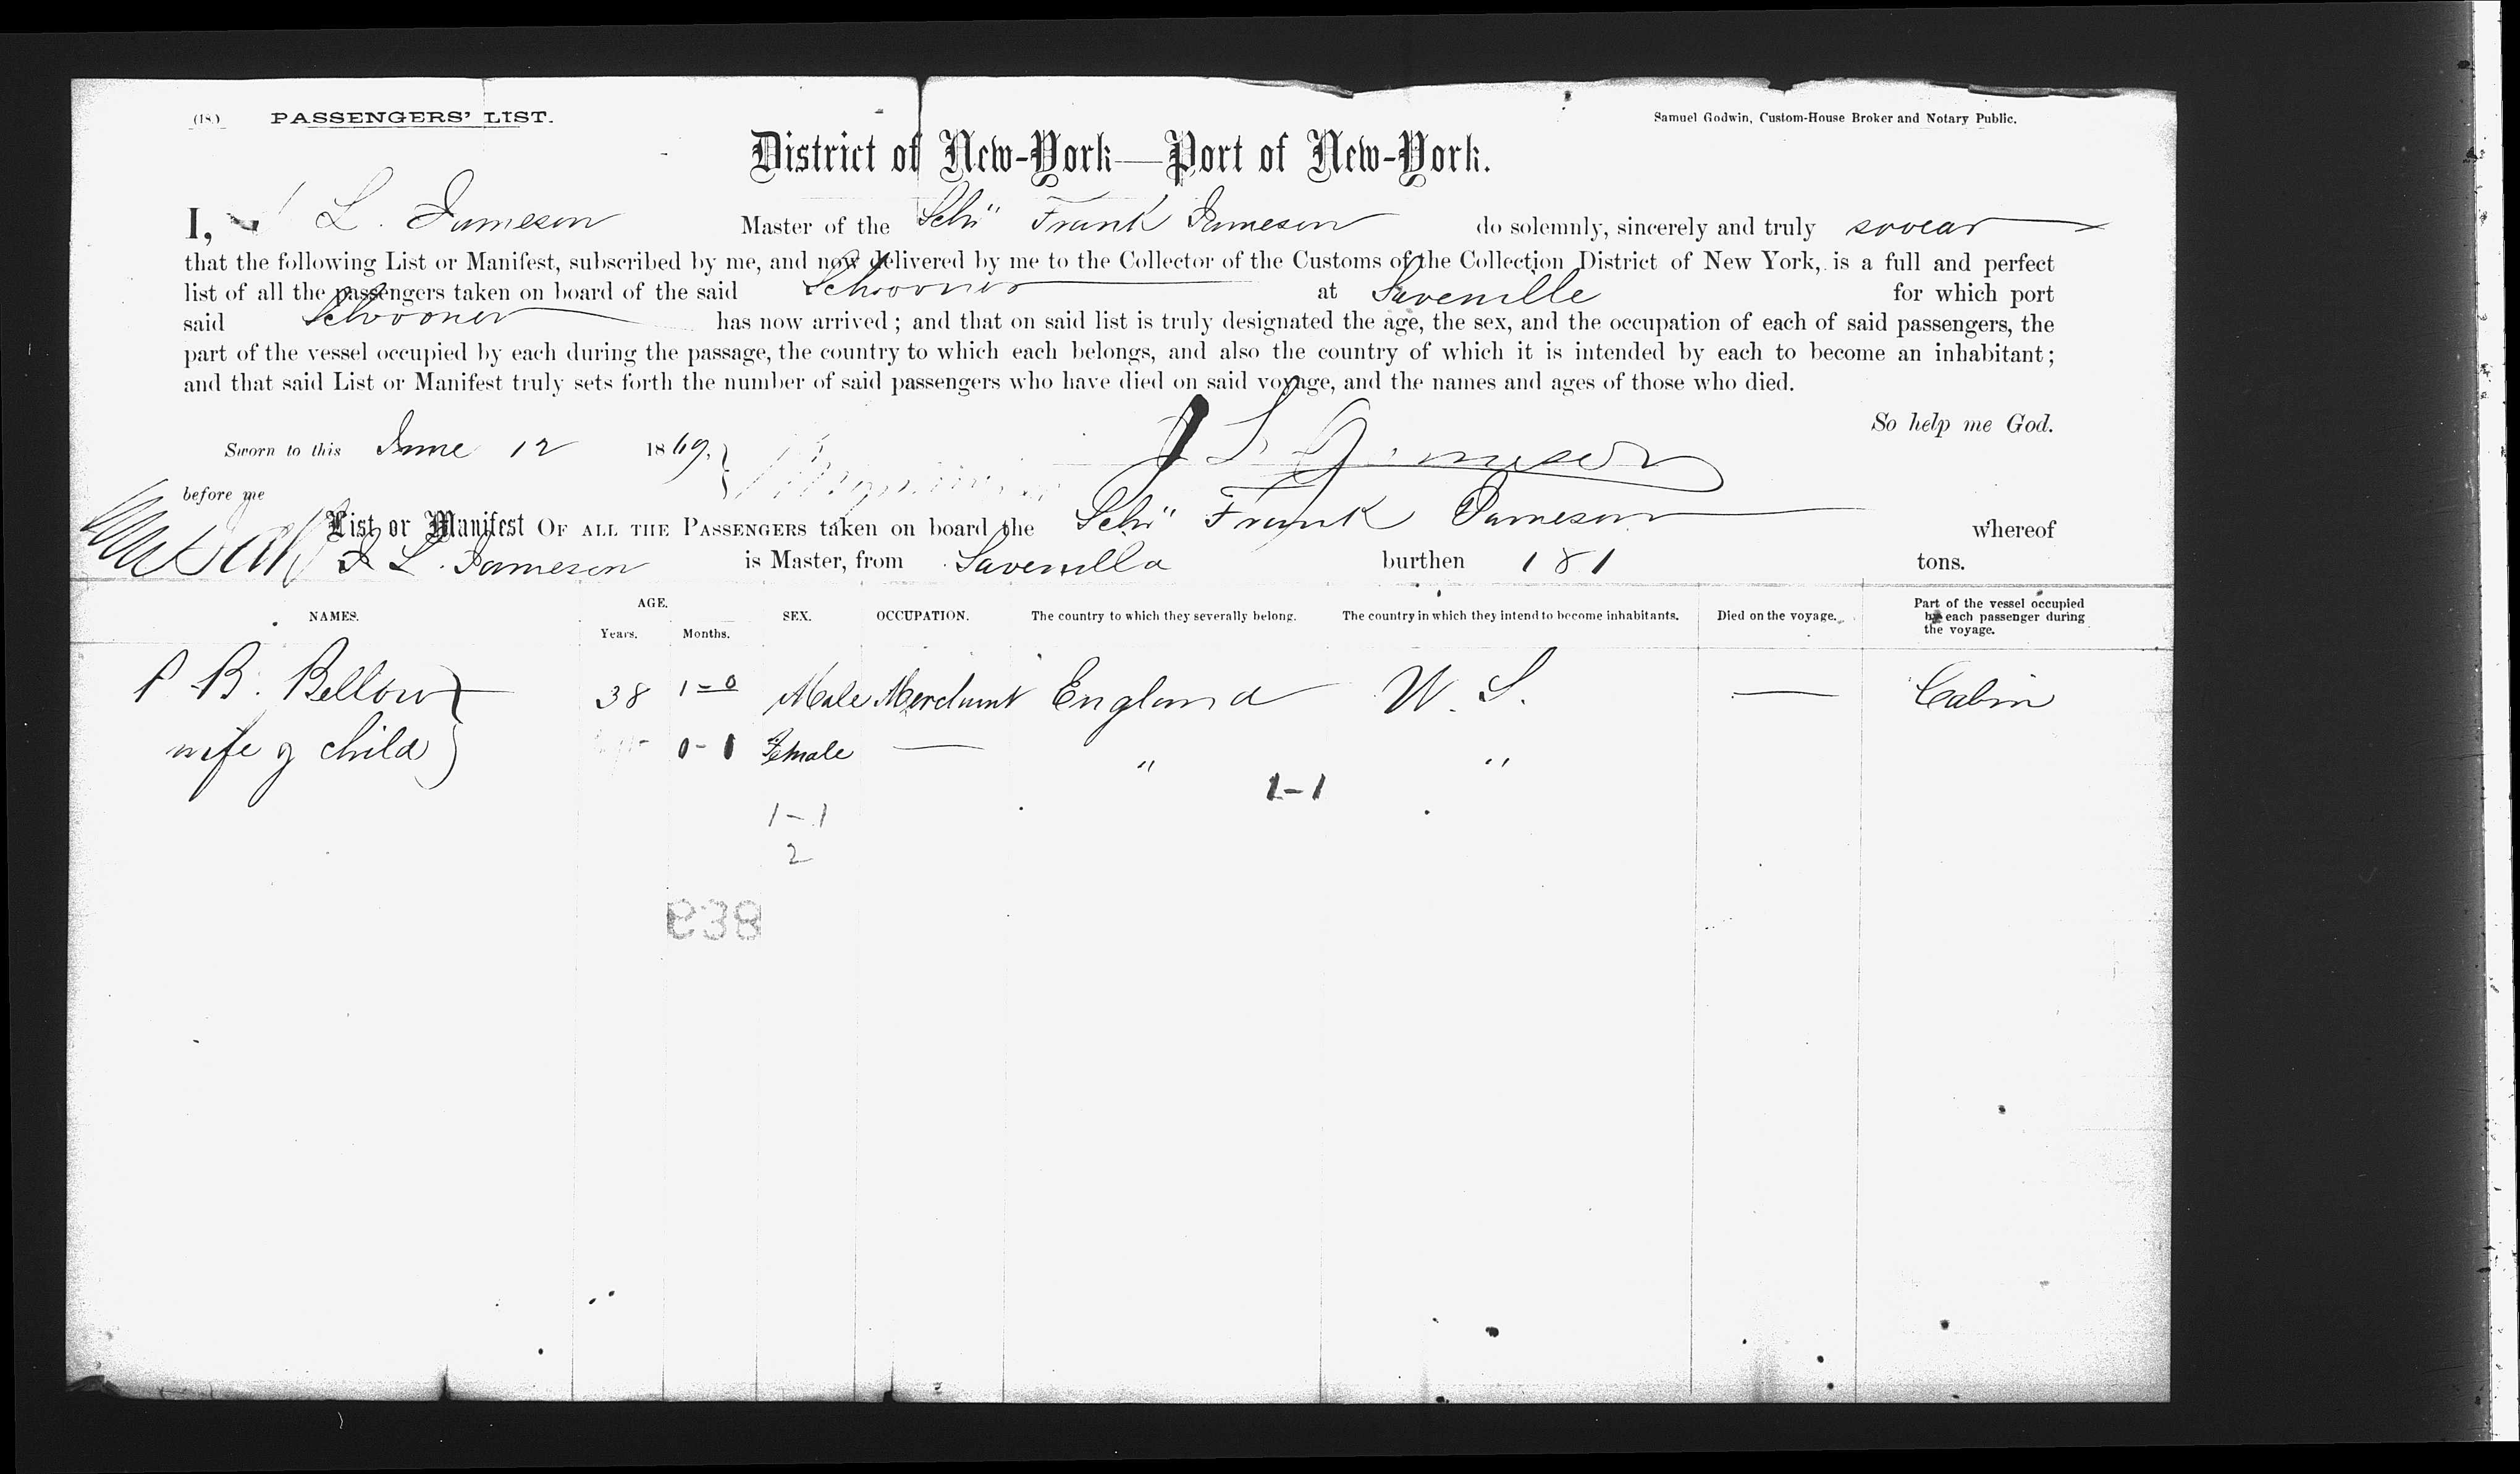 (18.) PASSENGERS' LIST. Samuel Godwin, Custom-House Broker and Notary Public.
District of New-York—Port of New-York.
I, L. Jameson Master of the Schr" Frank Jameson do solemnly, sincerely and truly swear
that the following List or Manifest, subscribed by me, and now delivered by me to the Collector of the Customs of the Collection District of New York, is a full and perfect
list of all the passengers taken on board of the said Schooner at Savenille for which port
said Schooner has now arrived; and that on said list is truly designated the age, the sex, and the occupation of each of said passengers, the
part of the vessel occupied by each during the passage, the country to which each belongs, and also the country of which it is intended by each to become an inhabitant;
and that said List or Manifest truly sets forth the number of said passengers who have died on said voyage, and the names and ages of those who died.
So help me God.
Sworn to this June 12 1869, J L Jameson
before me
List or Manifest OF ALL THE PASSENGERS taken on board the Schr" Frank Jameson whereof
J L. Jameson is Master, from Savenilla burthen 181 tons.
NAMES. AGE. Years. Months. SEX. OCCUPATION. The country to which they severally belong. The country in which they intend to become inhabitants. Died on the voyage. Part of the vessel occupied by each passenger during the voyage.
P B. Bellow 38 1-0 Male Merchant England U. S. — Cabin
wife & child 0-1 Female — " "
1-1
1-1
2
938